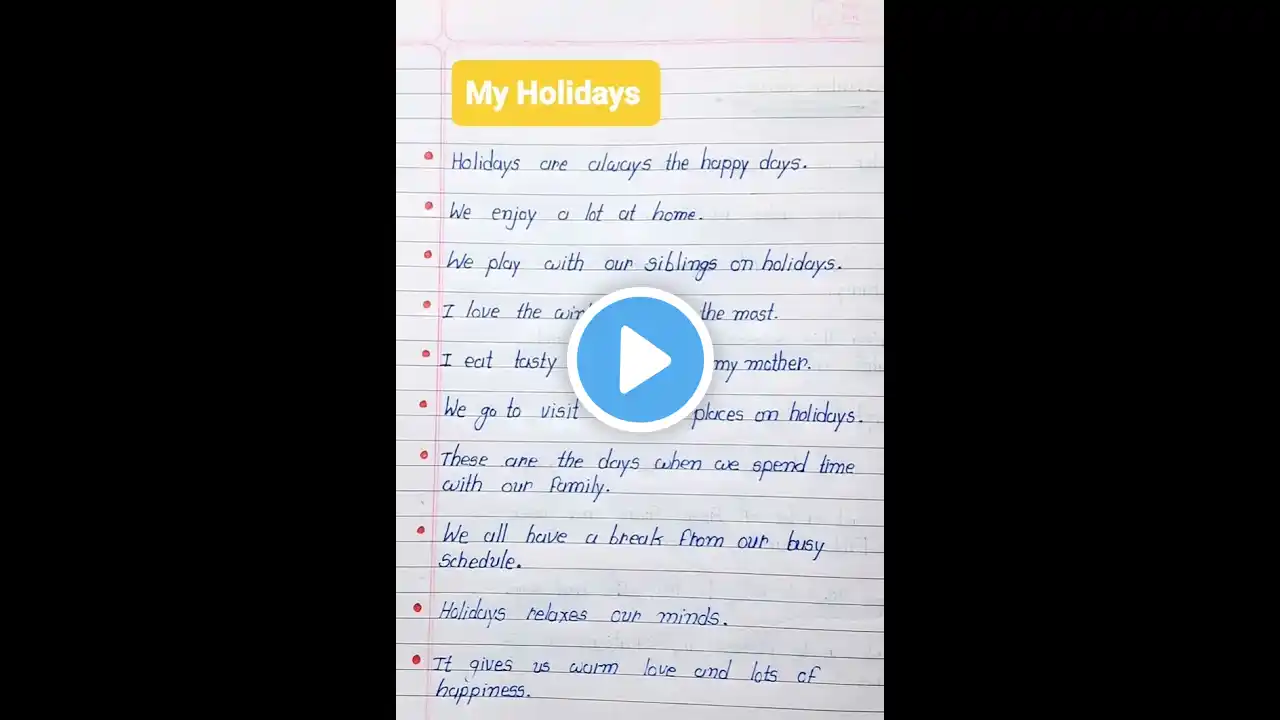 My Holidays
Holidays are always the happy days.
We enjoy a lot at home.
We play with our siblings on holidays.
I love the the most.
I eat tasty my mother.
We go to visit places on holidays.
These are the days when we spend time
with our family.
We all have a break from our busy
schedule.
Holidays relaxes our minds.
It gives us warm love and lots of
happiness.